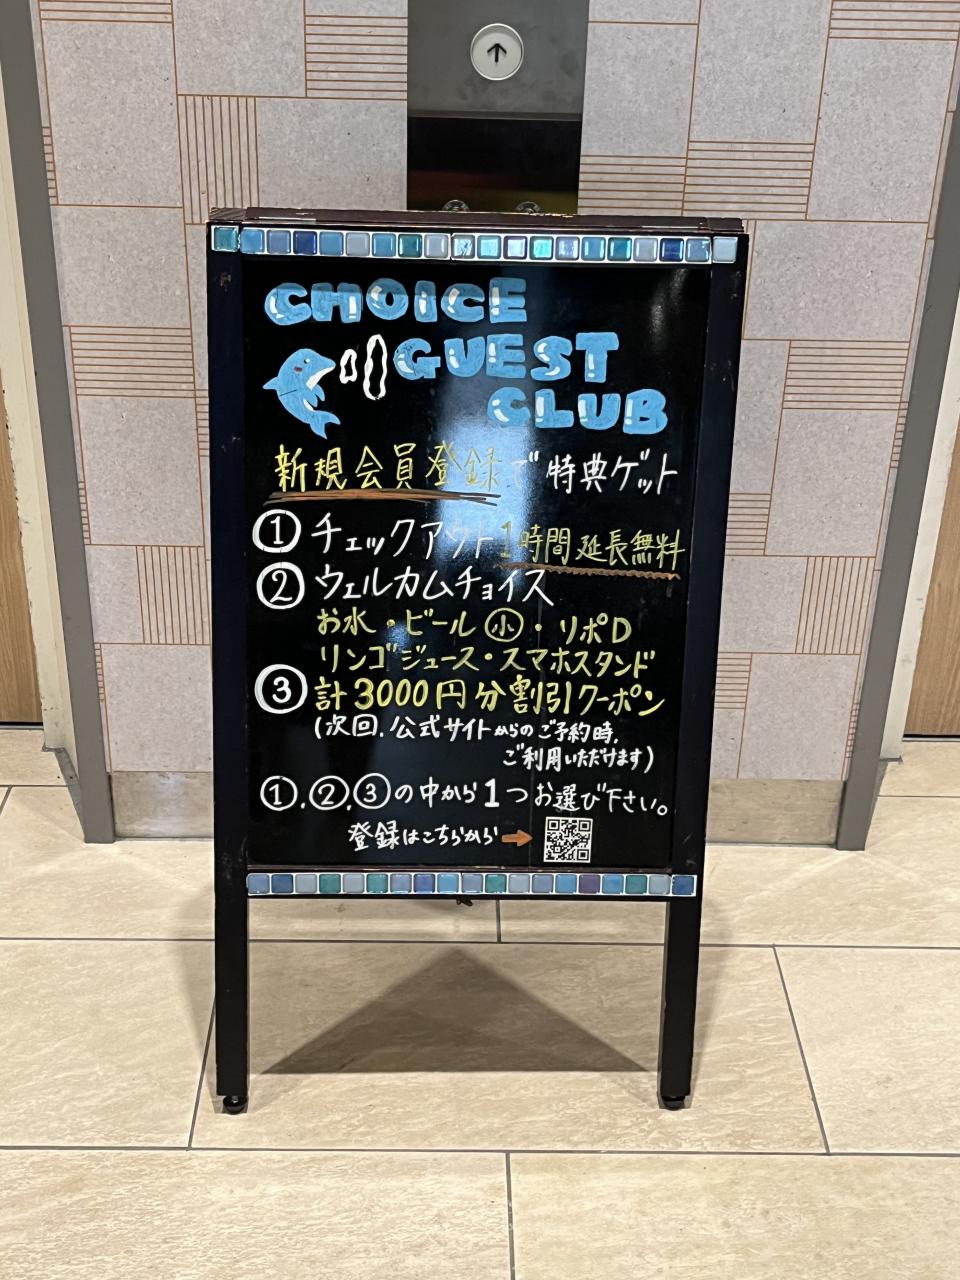 CHOICE
GUEST
CLUB
新規会員登録で特典ゲット
① チェックアウト1時間延長無料
② ウェルカムチョイス
お水・ビール㊙・リポD
リンゴジュース・スマホスタンド
③ 計3000円分割引クーポン
(次回.公式サイトからのご予約時,
ご利用いただけます)
①.②.③の中から1つお選び下さい。
登録はこちらから→